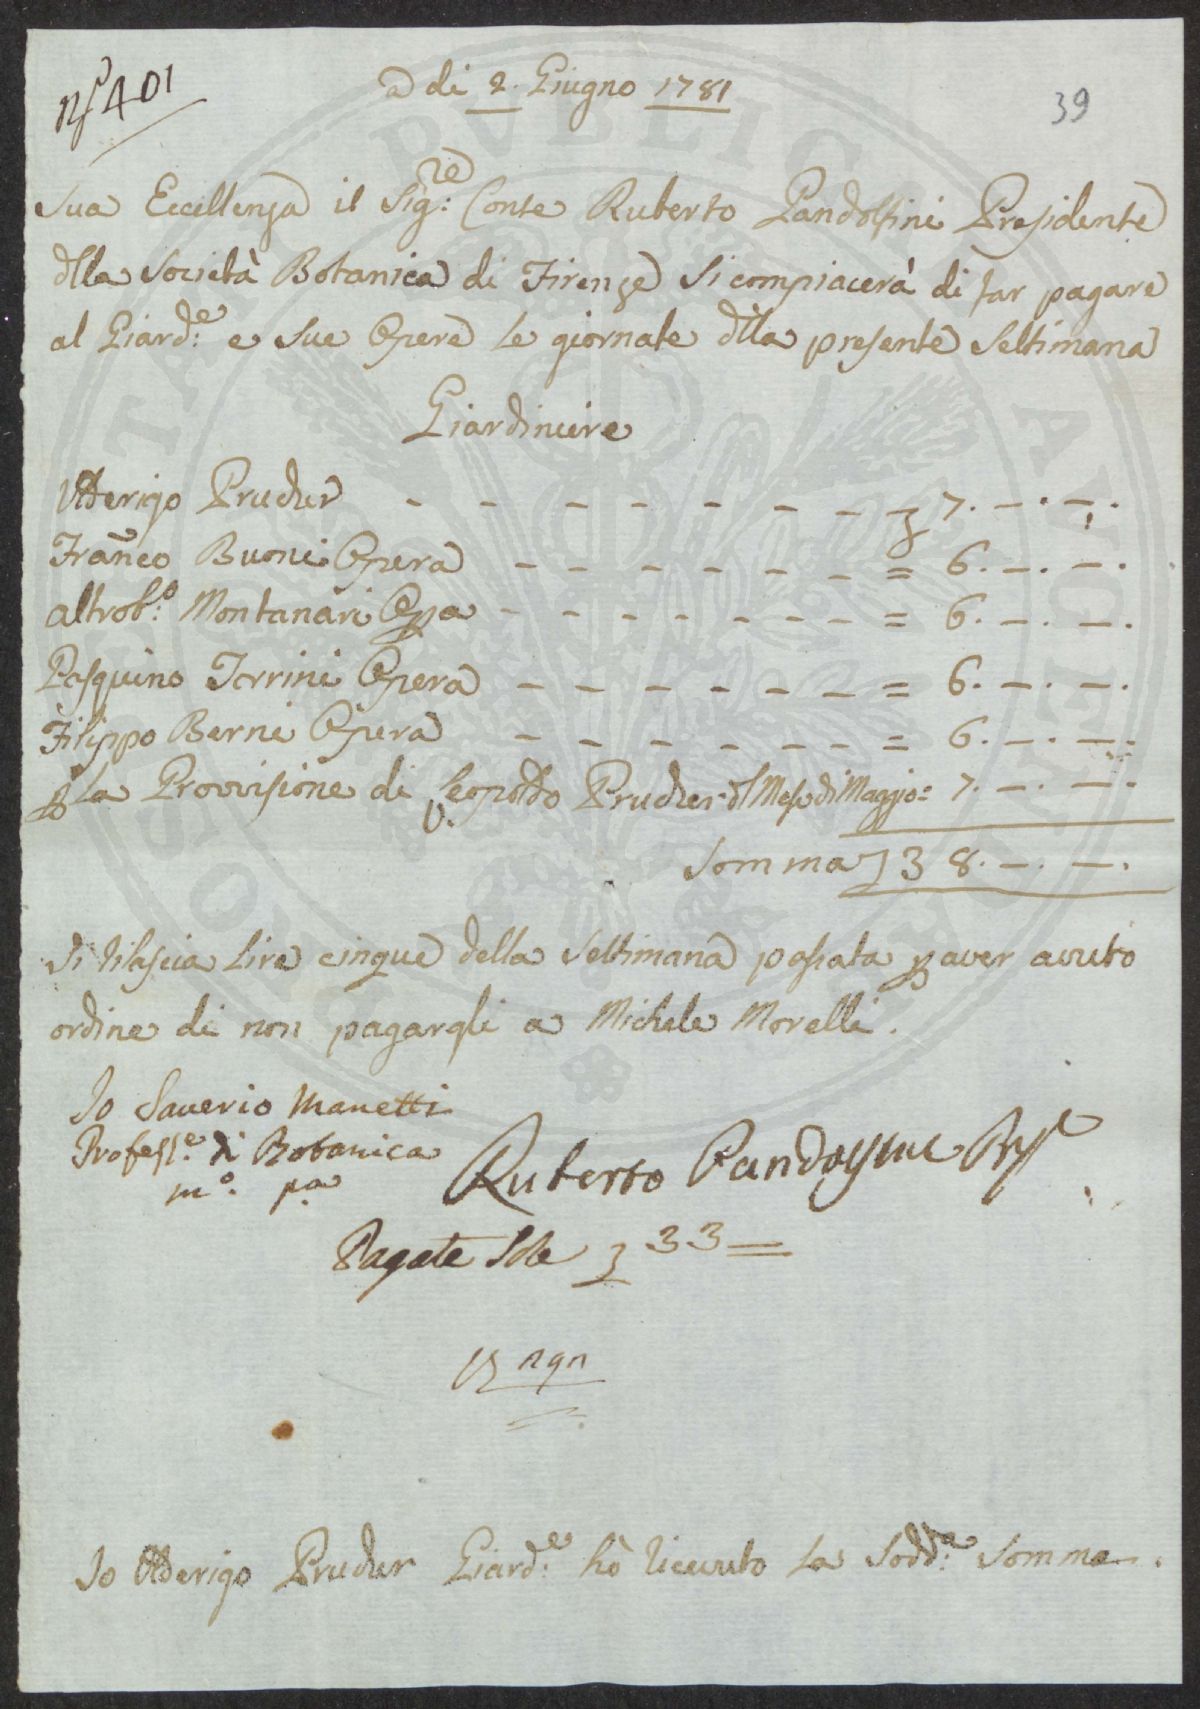 N° 401
a di 2. Giugno 1781
39
Sua Eccellenza il Sig:re Conte Ruberto Pandolfini Presidente
dlla Società Botanica di Firenze si compiacerà di far pagare
al Giard:e e sue Opere le giornate dlla presente Settimana
Giardiniere
Atterigo Prucker - - - - - - - - £ 7. —. —.
Franco Buoni Opera - - - - - - - = 6. —. —.
altrob:o Montanari Opa - - - - - - - = 6. —. —.
Pasquino Torrini Opera - - - - - - - = 6. —. —.
Filippo Berni Opera - - - - - - - = 6. —. —.
p La Provvisione di Leopoldo Prucker dl Mese di Maggio = 7. —. —.
Somma £ 38. —. —.
Si rilascia Lire cinque della Settimana passata p aver avuto
ordine di non pagargli a Michele Morelli.
Io Saverio Manetti
Profess.e di Botanica
m.o p.a
Ruberto Pandolfini
Pagate Sole £ 33 =
Io Atterigo Prucker Giard:e hò ricevuto la Sodd:a Somma.
PUBLICA